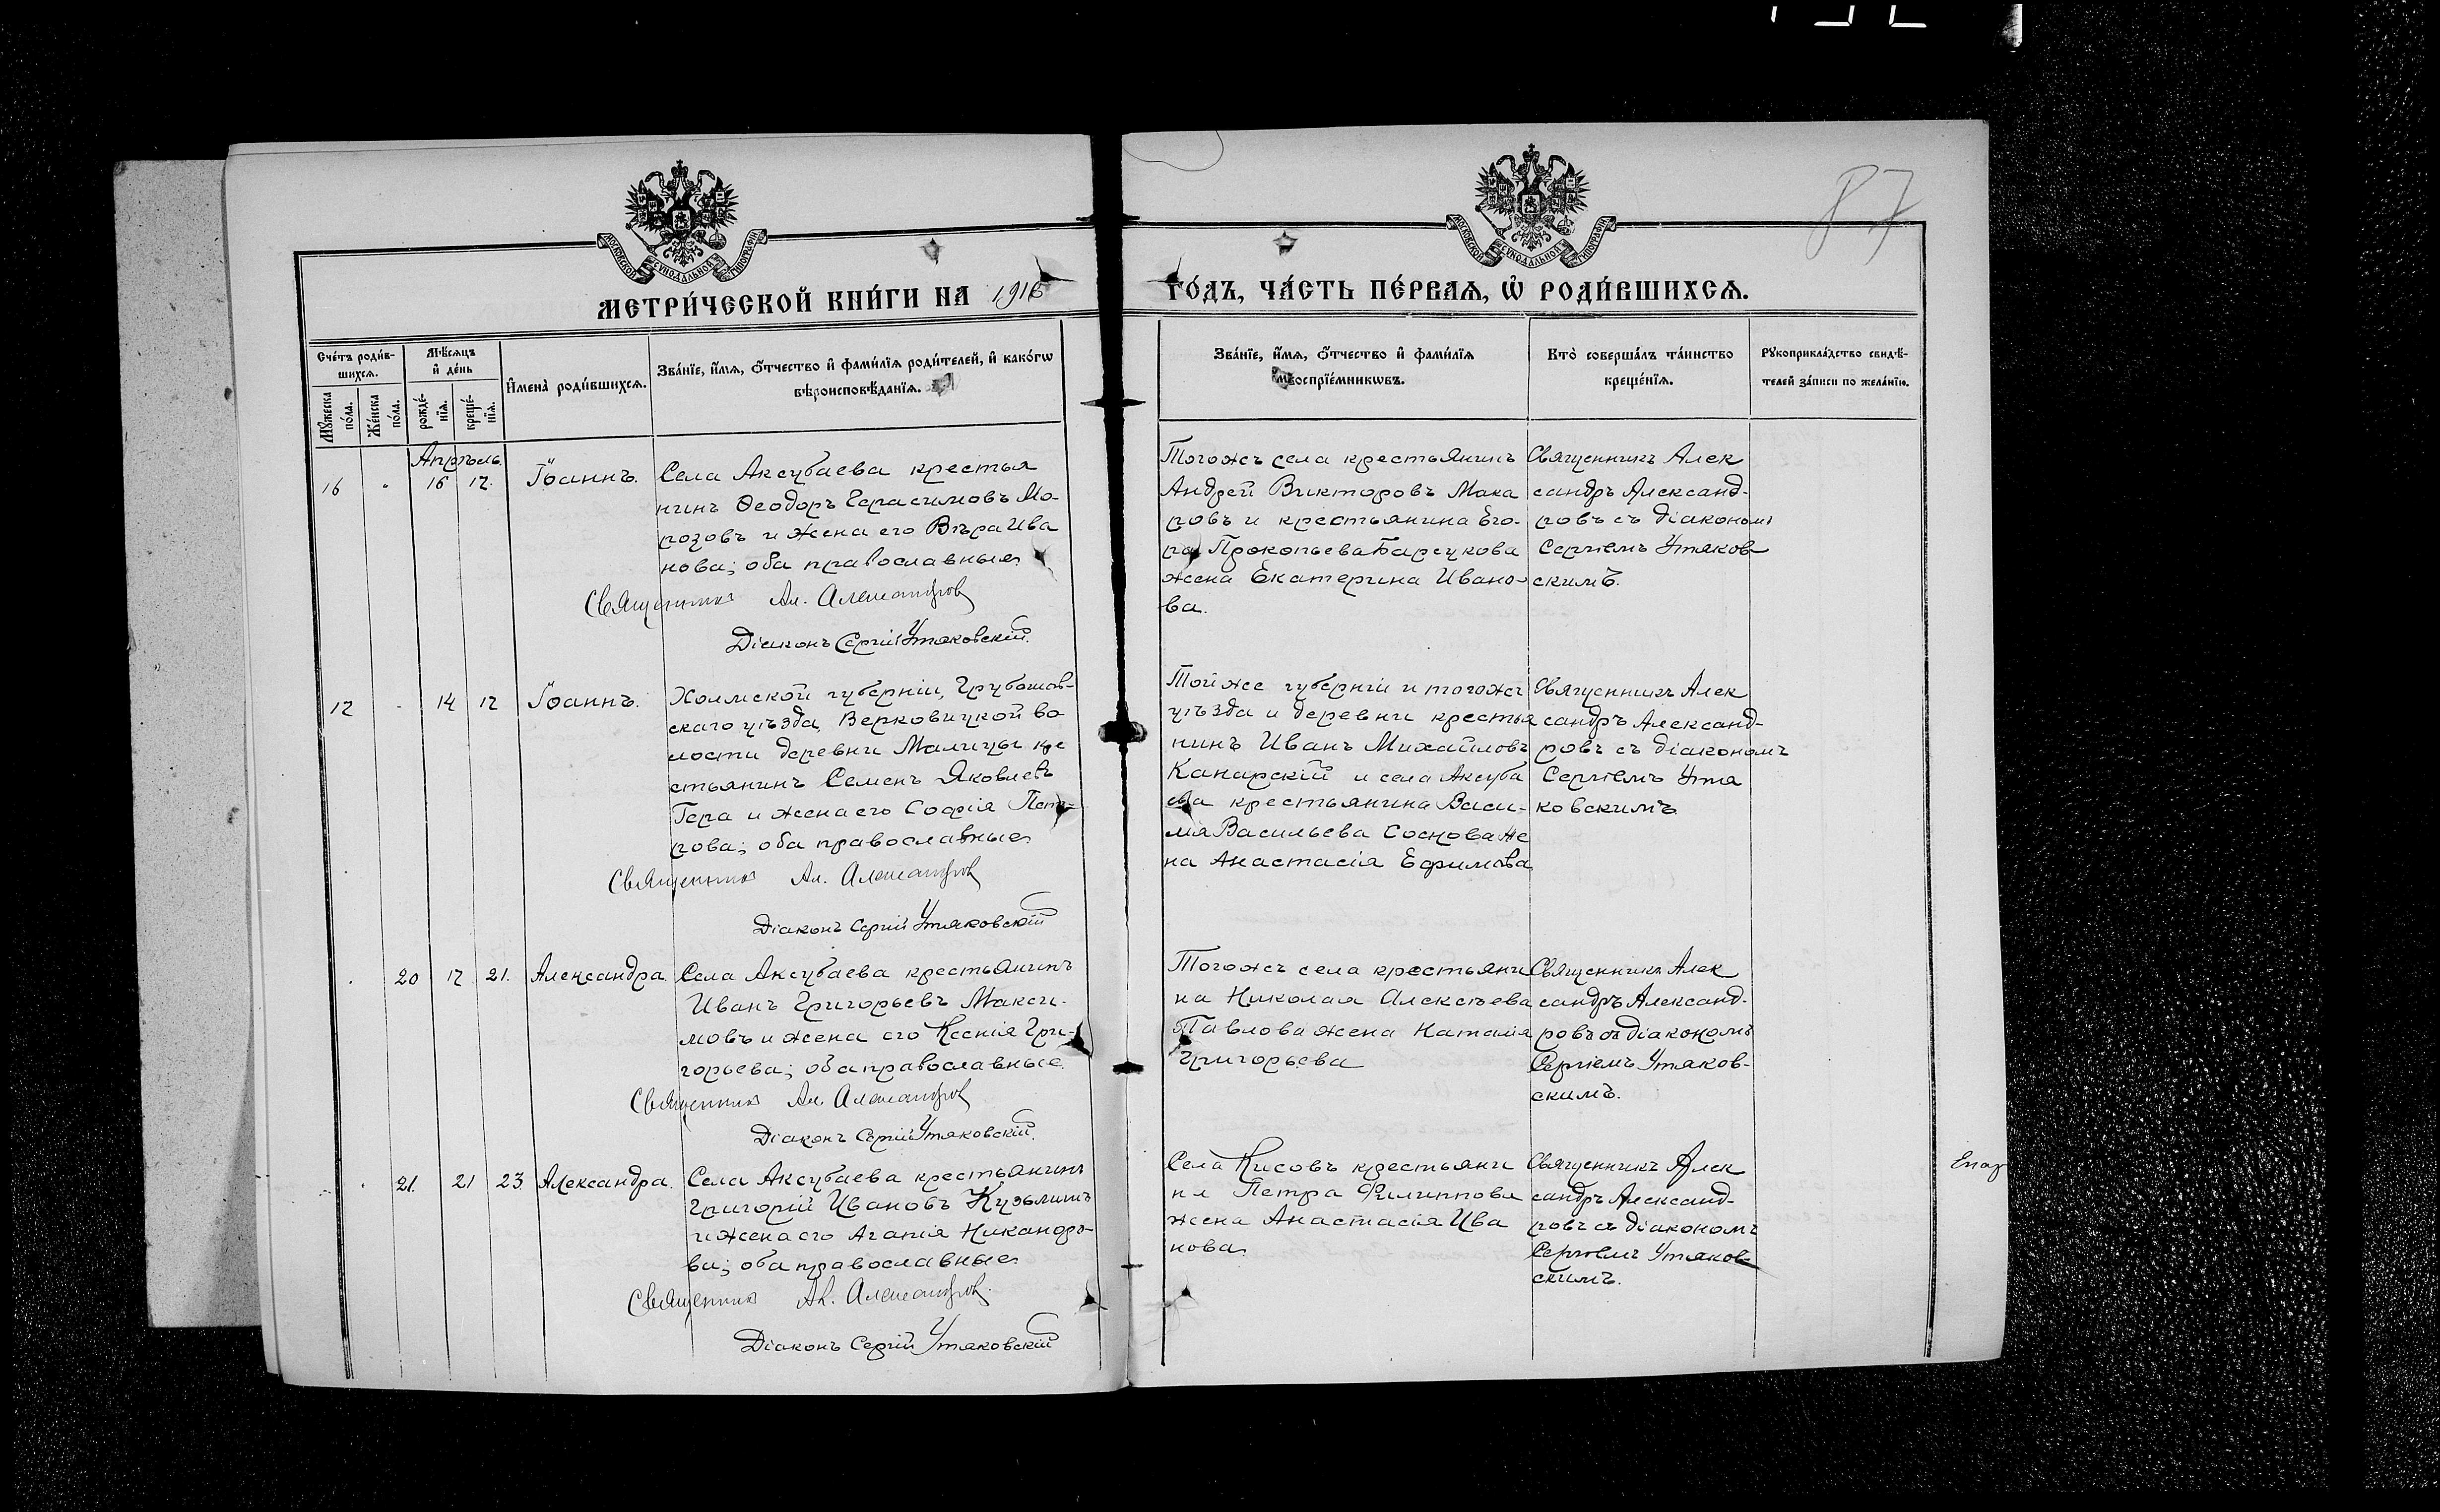 87
МОСКОВСКОЙ СѴНОДАЛЬНОЙ ТИПОГРАФІИ
МОСКОВСКОЙ СѴНОДАЛЬНОЙ ТИПОГРАФІИ
МЕТРИ́ЧЕСКОЙ КНИ́ГИ НА 1916 ГО́ДЪ, ЧА́СТЬ ПЕ́РВАѦ, Ѡ҆ РОДИ́ВШИХСѦ.
Сче́тъ роди́в-
шихсѧ.
Мꙋ́жеска по́ла.
Же́нска по́ла.
Мѣ́сѧцъ и҆ де́нь
рожде́-нїѧ.
креще́-нїѧ.
И҆мена̀ роди́вшихсѧ.
Зва́нїе, и҆́мѧ, ѻ҆́тчество и҆ фами́лїѧ роди́телей, и҆ како́гѡ
вѣроисповѣ́данїѧ.
Зва́нїе, и҆́мѧ, ѻ҆́тчество и҆ фами́лїѧ
воспрїе́мникѡвъ.
Кто̀ соверша́лъ та́инство
креще́нїѧ.
Рꙋкоприкла́дство свидѣ́-
телей за́писи по жела́нїю.
Апрѣль.
16 " 16 17. Іоаннъ.
Села Аксубаева крестья
нинъ Ѳеодоръ Герасимовъ Мо-
розовъ и жена его Вѣра Ива
нова; оба православные
Священникъ Ал. Александров
Діаконъ Сергій Утяковскій.
Тогожъ села крестьянинъ
Андрей Викторовъ Мака
ровъ и крестьянина Его-
ра Прокопьева Барсукова
жена Екатерина Ивано-
ва.
Священникъ Алек
сандръ Александ-
ровъ съ діакономъ
Сергіемъ Утяков
скимъ.
17 - 14 17 Іоаннъ.
Холмской губерніи, Грубешов-
скаго уѣзда, Верковицкой во
лости деревни Малицы кре
стьянинъ Семенъ Яковлевъ
Гера и жена его Софія Пет-
рова; оба православные
Священникъ Ал. Александров
Діаконъ Сергій Утяковскій
Той же губерніи и тогожъ
уѣзда и деревни крестья
нинъ Иванъ Михайловъ
Канарскій и села Аксуба
ева крестьянина Васи-
лія Васильева Соснова же
на Анастасія Ефимова
Священникъ Алек
сандръ Александ-
ровъ съ діакономъ
Сергіемъ Утя
ковскимъ
. 20 17 21. Александра.
Села Аксубаева крестьянинъ
Иванъ Григорьевъ Макси-
мовъ и жена его Ксенія Гри-
горьева; оба православные.
Священникъ Ал. Александров
Діаконъ Сергій Утяковскій.
Тогожъ села крестьяни
на Николая Алексѣева
Павлова жена Наталія
Григорьева
Священникъ Алек
сандръ Александ-
ровъ съ діакономъ
Сергіемъ Утяков-
скимъ.
. 21. 21 23 Александра.
Села Аксубаева крестьянинъ
Григорій Ивановъ Кузьминъ
и жена его Агапія Никаноро-
ва; оба православные
Священникъ Ал. Александров.
Діаконъ Сергій Утяковскій
Села Кисовъ крестьяни
на Петра Филиппова
жена Анастасія Ива
нова
Священникъ Алек
сандръ Александ-
ровъ съ діакономъ
Сергіемъ Утяков-
скимъ.